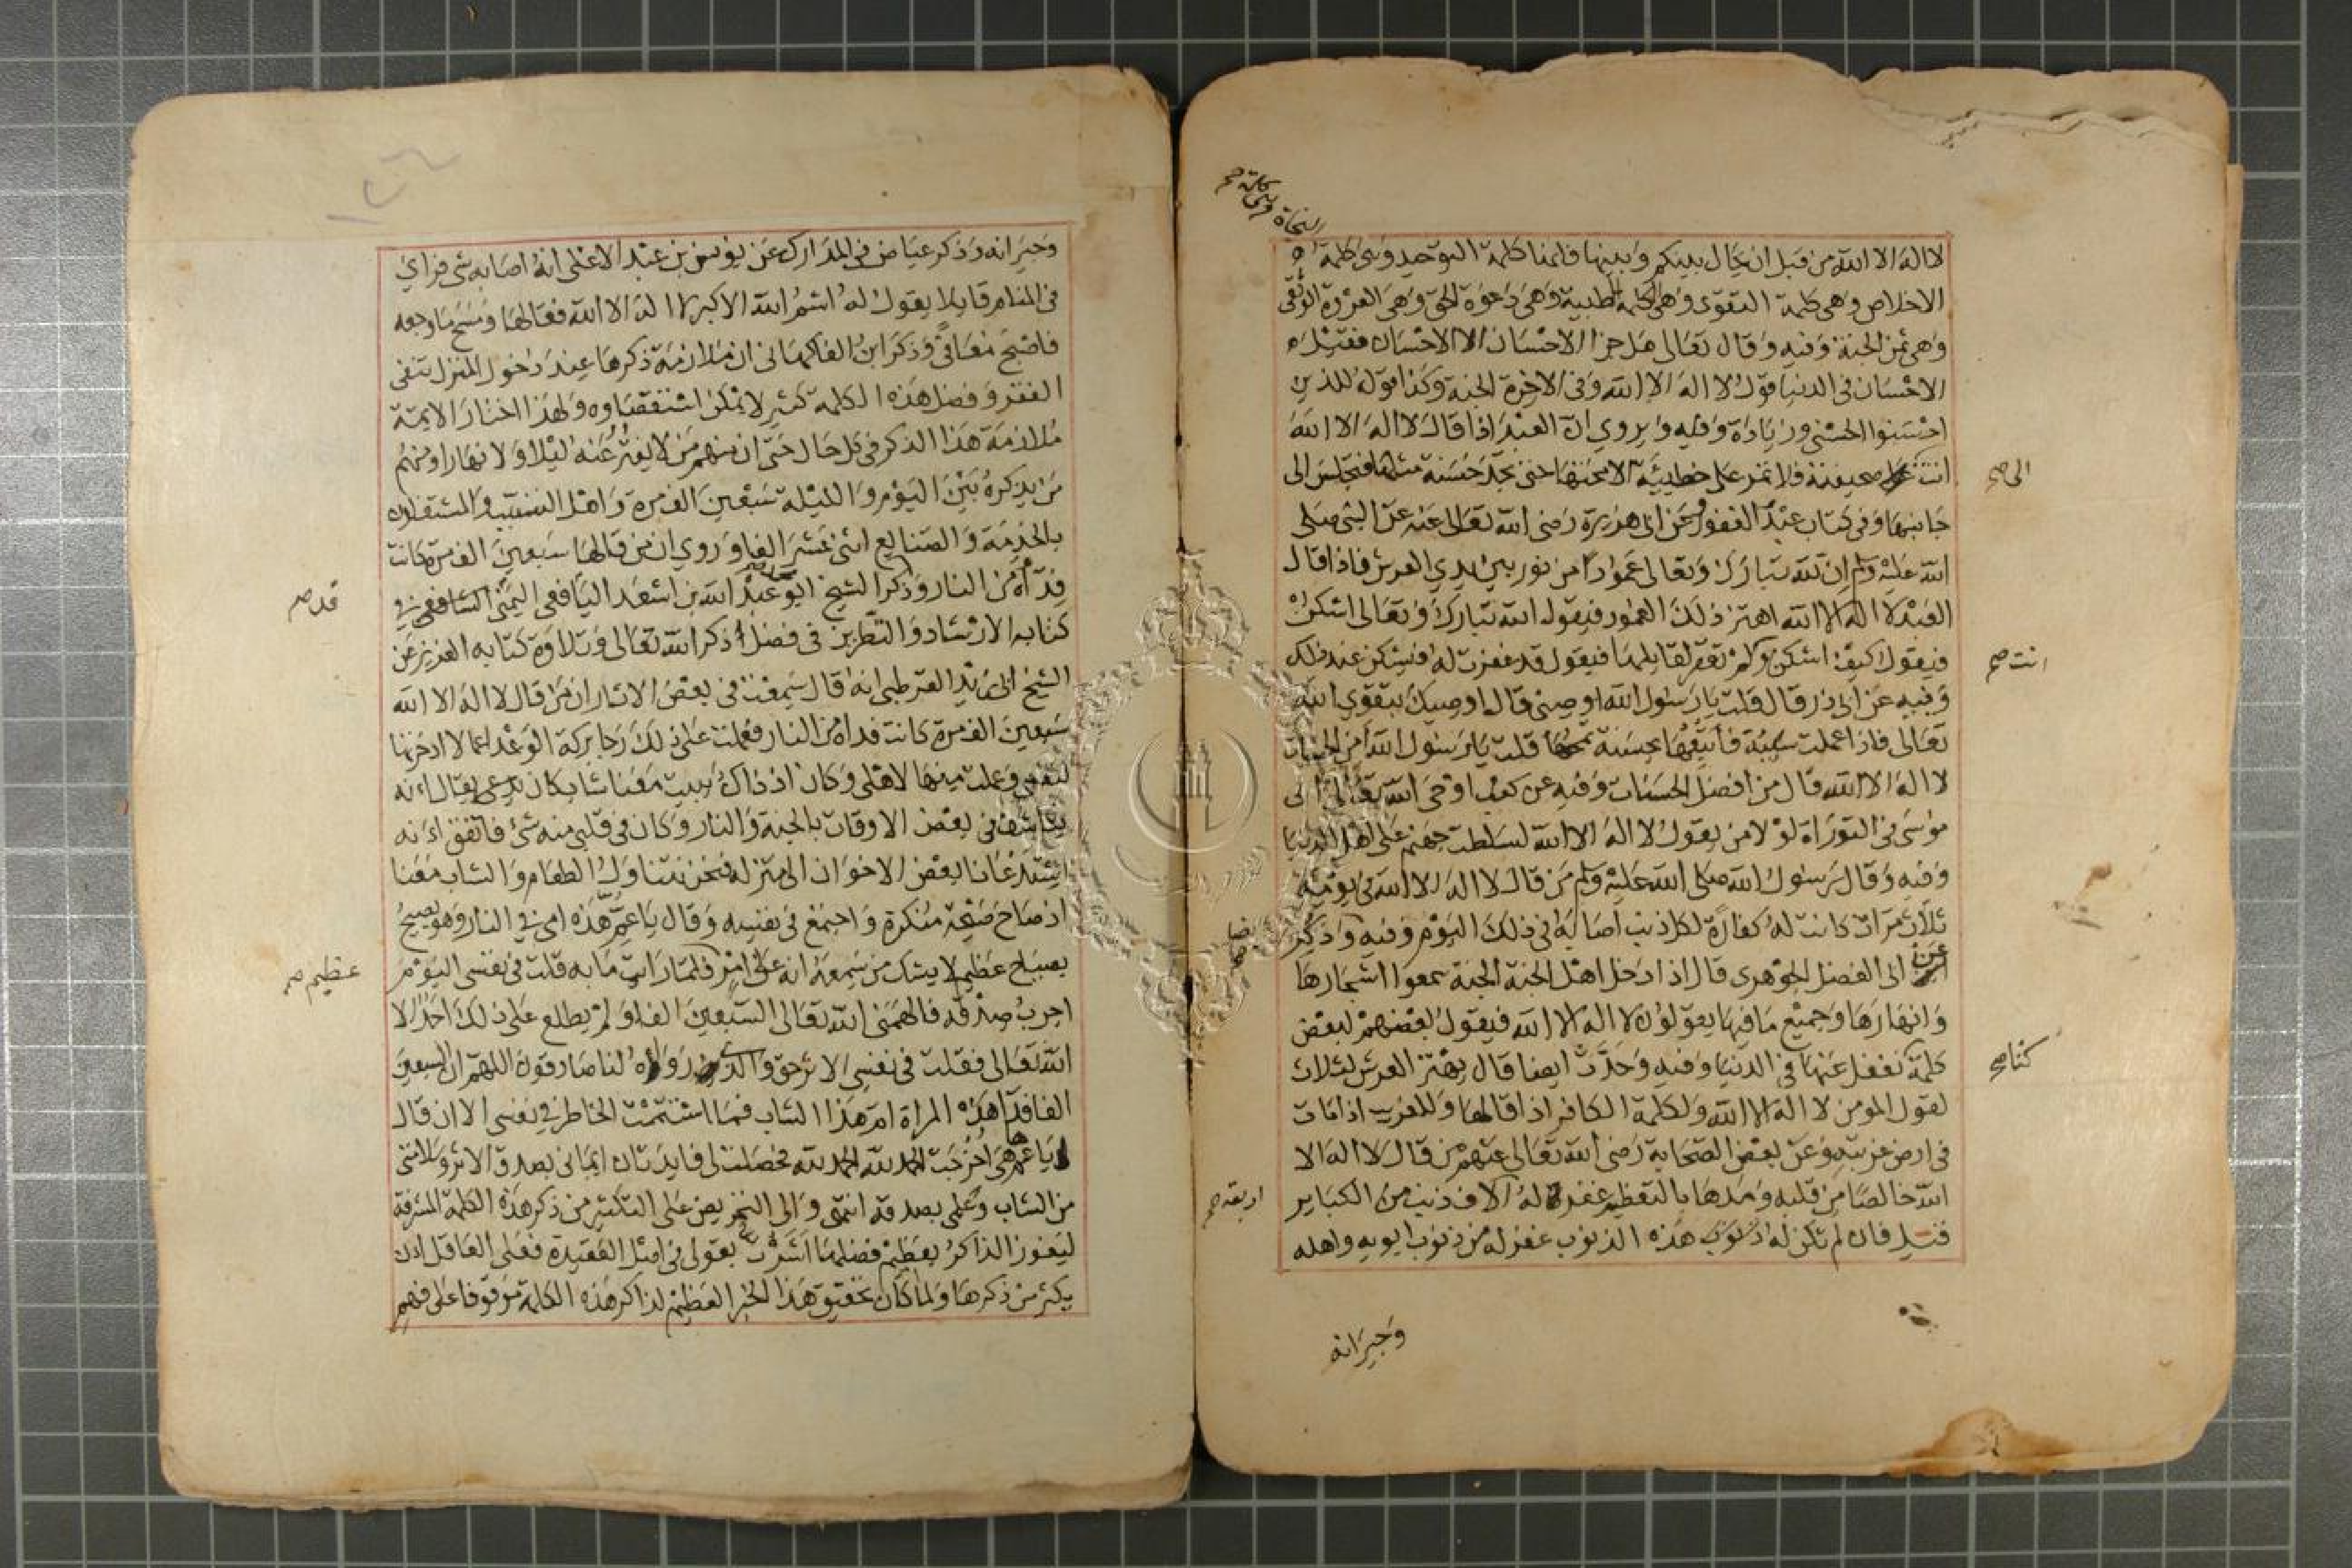 النجاة وهى كلمة صح
لا اله الا الله من قبل ان يحال بينكم وبينها فانها كلمة التوحيد وهى كلمة
الاخلاص وهى كلمة التقوى وهى الكلمة الطيبة وهى دعوة الحق وهى العروة الوثقى
وهى ثمن الجنة وفيه وقال تعالى هل جزا الاحسان الا الاحسان فقيل
الاحسان فى الدنيا قول لا اله الا الله وفى الاخرة الجنة وكذا قوله للذين
احسنوا الحسنى وزيادة وفيه ويروي ان العبد اذا قال لا اله الا الله
اتت صحيفته فلا تمر على خطيئة الا محتها حتى تجد حسنة مثلها فتجلس الى
الى صح
جانبها وفى كتاب عبد الغفور عن ابى هريرة رضى الله تعالى عنه عن النبى صلى
الله عليه وسلم ان لله تبارك وتعالى عمودا من نور بين يدي العرش فاذا قال
العبد لا اله الا الله اهتز ذلك العمود فيقول الله تبارك وتعالى اسكن
فيقول كيف اسكن ولم تغفر لقايلها فيقول قد غفرت له فيسكن عند ذلك
انت صح
وفيه عن ابى ذر قال قلت يا رسول الله اوصنى قال اوصيك بتقوي الله
تعالى فاذا عملت سيئة فاتبعها بحسنة تمحها قلت يا رسول الله أمن الحسنات
لا اله الا الله قال من افضل الحسنات وفيه عن كعب اوحى الله تعالى الى
موسى فى التوراة لولا من يقول لا اله الا الله لسلطت جهنم على اهل الدنيا
وفيه وقال رسول الله صلى الله عليه وسلم من قال لا اله الا الله فى يومه
ثلاث مرات كانت له كفارة لكل ذنب اصابه فى ذلك اليوم وفيه وذكر
عن ابى الفضل الجوهرى قال اذا دخل اهل الجنة الجنة سمعوا اشجارها
وانهارها وجميع ما فيها يقولون لا اله الا الله فيقول بعضهم لبعض
كلمة نغفل عنها فى الدنيا وفيه وحدث ايضا قال يهتز العرش لثلاث
كنا صح
لقول المومن لا اله الا الله ولكلمة الكافر اذا قالها وللغريب اذا مات
فى ارض غربته وعن بعض الصحابة رضى الله تعالى عنهم من قال لا اله الا
الله خالصا من قلبه ومدها بالتعظيم غفر له الاف ذنب من الكباير
اربعة صح
قيل فان لم تكن له ذنوب هذه الذنوب غفر له من ذنوب ابويه واهله
وجيرانه
وجيرانه وذكر عياض فى المدارك عن يونس بن عبد الاعلى انه اصابه شى فراي
فى المنام قايلا يقول له اسم الله الاكبر لا اله الا الله فقالها ومسح ما وجعه
فاصبح معافى وذكر ابن الفاكهانى ان ملازمة ذكرها عند دخول المنزل تنفى
الفقر وفضل هذه الكلمة كثير لا يمكن استقصاوه ولهذا اختار الايمة
ملازمة هذا الذكر فى كل حال حتى ان منهم من لا يفتر عنه ليلا ولا نهارا ومنهم
من يذكره بين اليوم والليلة سبعين الف مرة واهل التسبب والمشتغلون
بالخدمة والصنايع اثنى عشر الفا وروي ان من قالها سبعين الف مرة كانت
فداه من النار وذكر الشيخ ابو عبد الله بن اسعد اليافعى اليمنى الشافعى فى
قد صح
كتابه الارشاد والتطريز فى فضل ذكر الله تعالى وتلاوة كتابه العزيز عن
الشيخ ابى يزيد القرطبى انه قال سمعت فى بعض الاثار ان من قال لا اله الا الله
سبعين الف مرة كانت فداه من النار فعملت على ذلك رجا بركة الوعد اعمالا ادخرتها
لنفسى وعملت منها لاهلى وكان اذ ذاك يبيت معنا شاب كان يدعى يقال انه
يكاشف فى بعض الاوقات بالجنة والنار وكان فى قلبى منه شئ فاتفق انه
استدعانا بعض الاخوان الى منزله فنحن نتناول الطعام والشاب معنا
اذ صاح صيحة منكرة واجتمع فى نفسه وقال يا عم هذه امى فى النار وهو يصيح
بصياح عظيم لا يشك من سمعه انه عن امر فلما رايت ما به قلت فى نفسى اليوم
عظيم صح
اجرب صدقه فالهمنى الله تعالى السبعين الفا ولم يطلع على ذلك احدا الا
الله تعالى فقلت فى نفسى الاثر حق والذين رووه لنا صادقون اللهم ان السبعين
الفا فدا هذه المراة ام هذا الشاب فما استتمت الخاطر فى نفسى الا ان قال
يا عم ها هى اخرجت الحمد لله الحمد لله فحصلت لى فايدتان ايمانى بصدق الاثر وسلامتى
من الشاب وعلمى بصدقه انتهى والى التحريض على التكثير من ذكر هذه الكلمة المشرفة
ليفوز الذاكر بعظيم فضلها اشرت بقولى فى اصل العقيدة فعلى العاقل ان
يكثر من ذكرها ولما كان تحقيق هذا الخبر العظيم لذاكر هذه الكلمة موقوفا على فهم